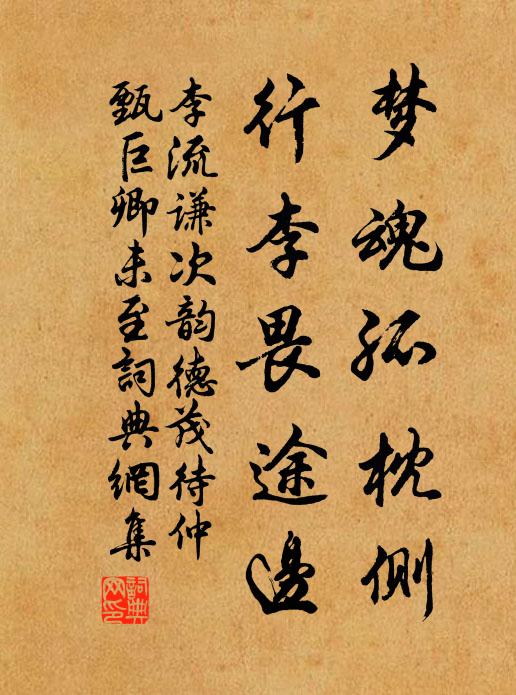 梦魂孤枕侧
行李畏途邊
李流谦次韵德茂待仲
甄巨卿未至詞典網集
詞典網印